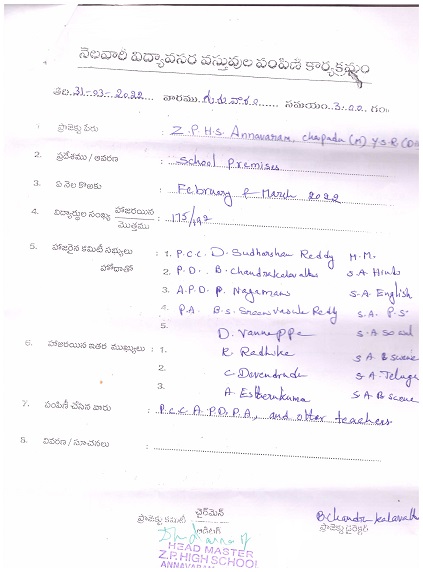 నెలవారి విద్యావసర వస్తువుల పంపిణి కార్యక్రమం
తేది 31-03-2022 వారము గురువారం సమయం 3.00 గం
1. ప్రాజెక్టు పేరు : Z.P.H.S. Annavaram, chapadu (M) Y.S.R (D)
2. ప్రదేశము / ఆవరణ : School Premises
3. ఏ నెల కొఱకు : February & March 2022
4. విద్యార్థుల సంఖ్య హాజరయిన / మొత్తము : 175/192
5. హాజరైన కమిటీ సభ్యులు : 1. P.C.C. D. Sudharshan Reddy H.M.
హోదాతో 2. P.D. B. Chandrakalavathi S.A. Hindi
3. A.P.D. P. Nagamani S.A. English
4. P.A. B.S. Sreenivasula Reddy S.A. P.S
5. D. Vannappa S.A. Social
6. హాజరయిన ఇతర ముఖ్యులు : 1. K. Radhika S.A. B science
2. C. Devendrudu S.A. Telugu
3. A. Estherukuma S.A. B science
7. పంపిణీ చేసిన వారు : P.C.C A.P.D, P.A, and other teachers.
8. వివరణ / సూచనలు :
ప్రాజెక్టు కమిటీ చైర్‌మెన్ / ఆడిటర్
B. Chandrakalavathi
ప్రాజెక్టు డైరెక్టర్
HEAD MASTER
Z.P. HIGH SCHOOL
ANNAVARAM